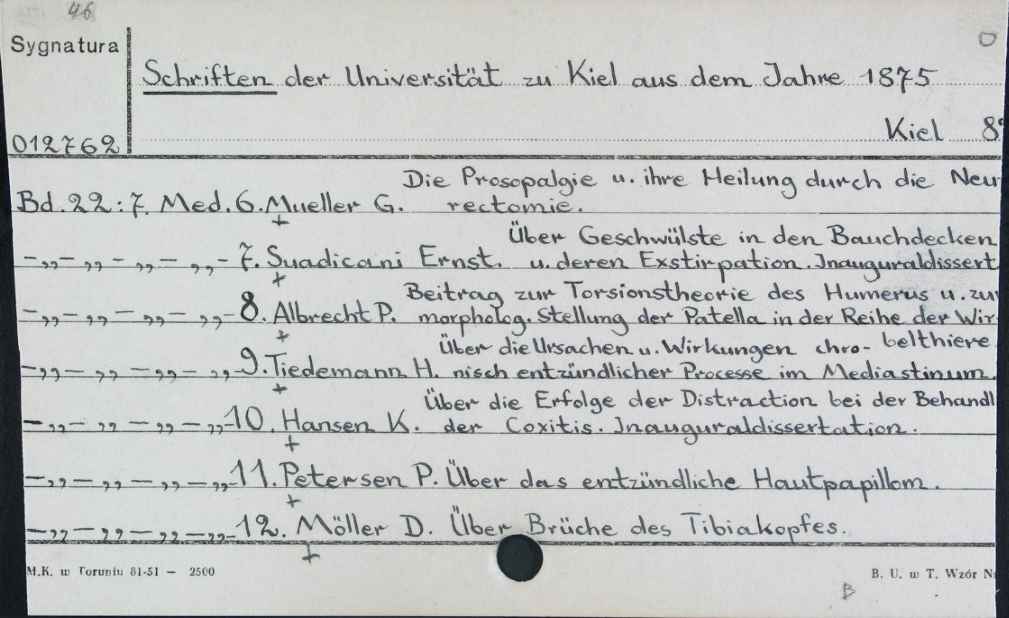 46
Sygnatura
O
Schriften der Universität zu Kiel aus dem Jahre 1875
012762
Kiel 8°
Die Prosopalgie u. ihre Heilung durch die Neu-
Bd. 22 : 7. Med. 6. Mueller G. rectomie.
Über Geschwülste in den Bauchdecken
-„- „ - „ - „ - 7. Suadicani Ernst. u. deren Exstirpation. Inauguraldissert
Beitrag zur Torsionstheorie des Humerus u. zu
-„- „ - „ - „ - 8. Albrecht P. morpholog. Stellung der Patella in der Reihe der Wir-
Über die Ursachen u. Wirkungen chro- belthiere
-„- „ - „ - „ - 9. Tiedemann H. nisch entzündlicher Processe im Mediastinum.
Über die Erfolge der Distraction bei der Behandl
-„- „ - „ - „ - 10. Hansen K. der Coxitis. Inauguraldissertation.
-„- „ - „ - „ - 11. Petersen P. Über das entzündliche Hautpapillom.
-„- „ - „ - „ - 12. Möller D. Über Brüche des Tibiakopfes.
M.K. w Toruniu 81-51 — 2500
B. U. w T. Wzór Nr
B